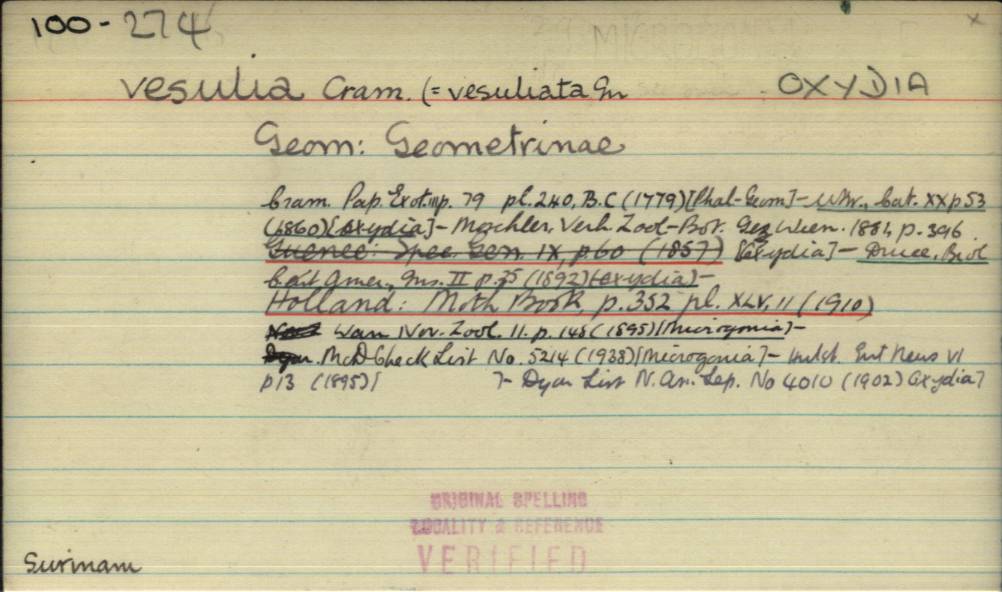 100-274 x
vesulia Cram. (= vesuliata Gn OXYDIA
Geom: Geometrinae
Cram. Pap. Exot. iii p. 79 pl. 240, B.C (1779) [Phal-Geom] - Wkr., Cat. XX p 53
(1860) [oxydia] - Moschler, Verh. Zool-Bot. Gez Wien. 1881, p. 396
Guenée: Spec. Gen. IX, p. 60 (1857) [Oxydia] - Druce, Biol
Cent Amer., Ins. II p. 35 (1892) [oxydia] -
Holland: Moth Book, p. 352 pl. XLV, 11 (1910)
War. Nov. Zool. 11. p. 148 (1895) [Microgonia] -
Dyar. McD Check List No. 5214 (1938) [Microgonia] - Hulst. Ent News VI
p 13 (1895) [ ] - Dyar List N. Am. Lep. No 4010 (1902) Oxydia]
ORIGINAL SPELLING
LOCALITY & REFERENCE
VERIFIED
Surinam